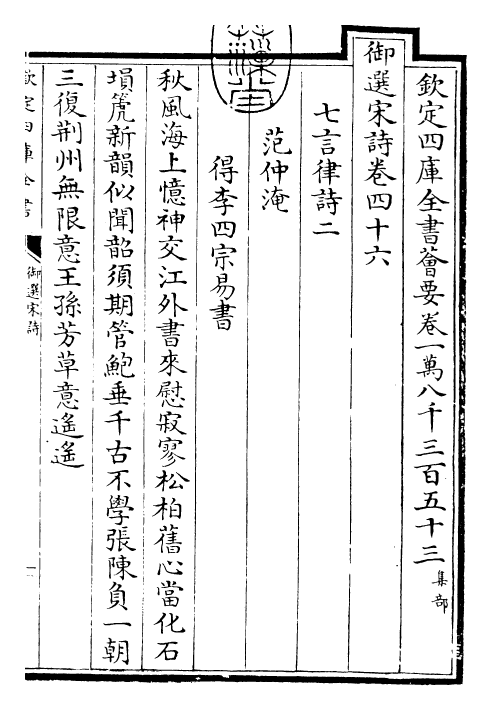 欽定四庫全書薈要卷一萬八千三百五十三 集部
御選宋詩卷四十六
七言律詩二
范仲淹
得李四宗易書
秋風海上憶神交江外書來慰寂寥松柏舊心當化石
塤篪新韻似聞韶須期管鮑垂千古不學張陳負一朝
三復荆州無限意王孫芳草意遙遙
欽定四庫全書
御選宋詩
一